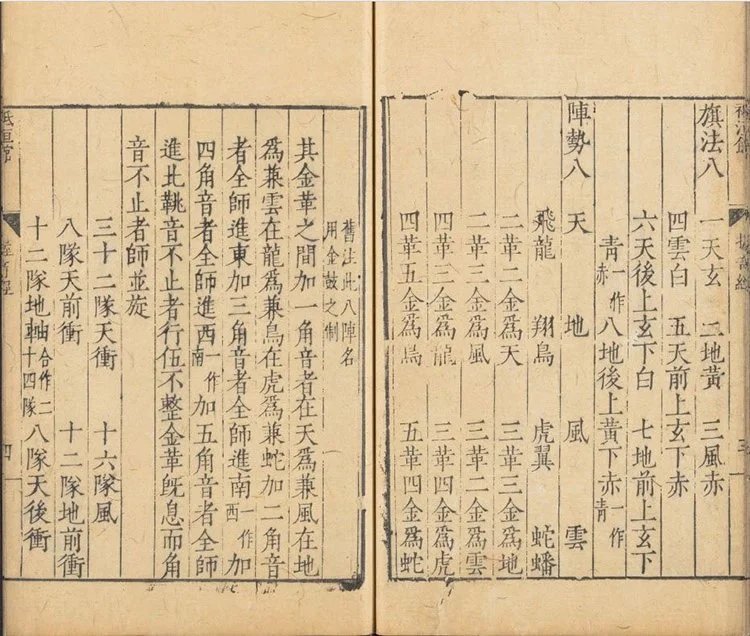 旗法八 一天玄 二地黃 三風赤
四雲白 五天前上玄下赤
六天後上玄下白 七地前上玄下
青一作赤 八地後上黃下赤一作青
陣勢八 天 地 風 雲
飛龍 翔鳥 虎翼 蛇蟠
二革二金爲天 三革三金爲地
二革三金爲風 三革二金爲雲
四革三金爲龍 三革四金爲虎
四革五金爲鳥 五革四金爲蛇
舊注此八陣名
用金鼓之制
其金革之間加一角音者在天爲兼風在地
爲兼雲在龍爲兼鳥在虎爲兼蛇加二角音
者全師進東加三角音者全師進南一作西加
四角音者全師進西一作南加五角音者全師
進比鞉音不止者行伍不整金革旣息而角
音不止者師並旋
三十二隊天衝 十六隊風
八隊天前衝 十二隊地前衝
十二隊地軸合作二十四隊 八隊天後衝
四